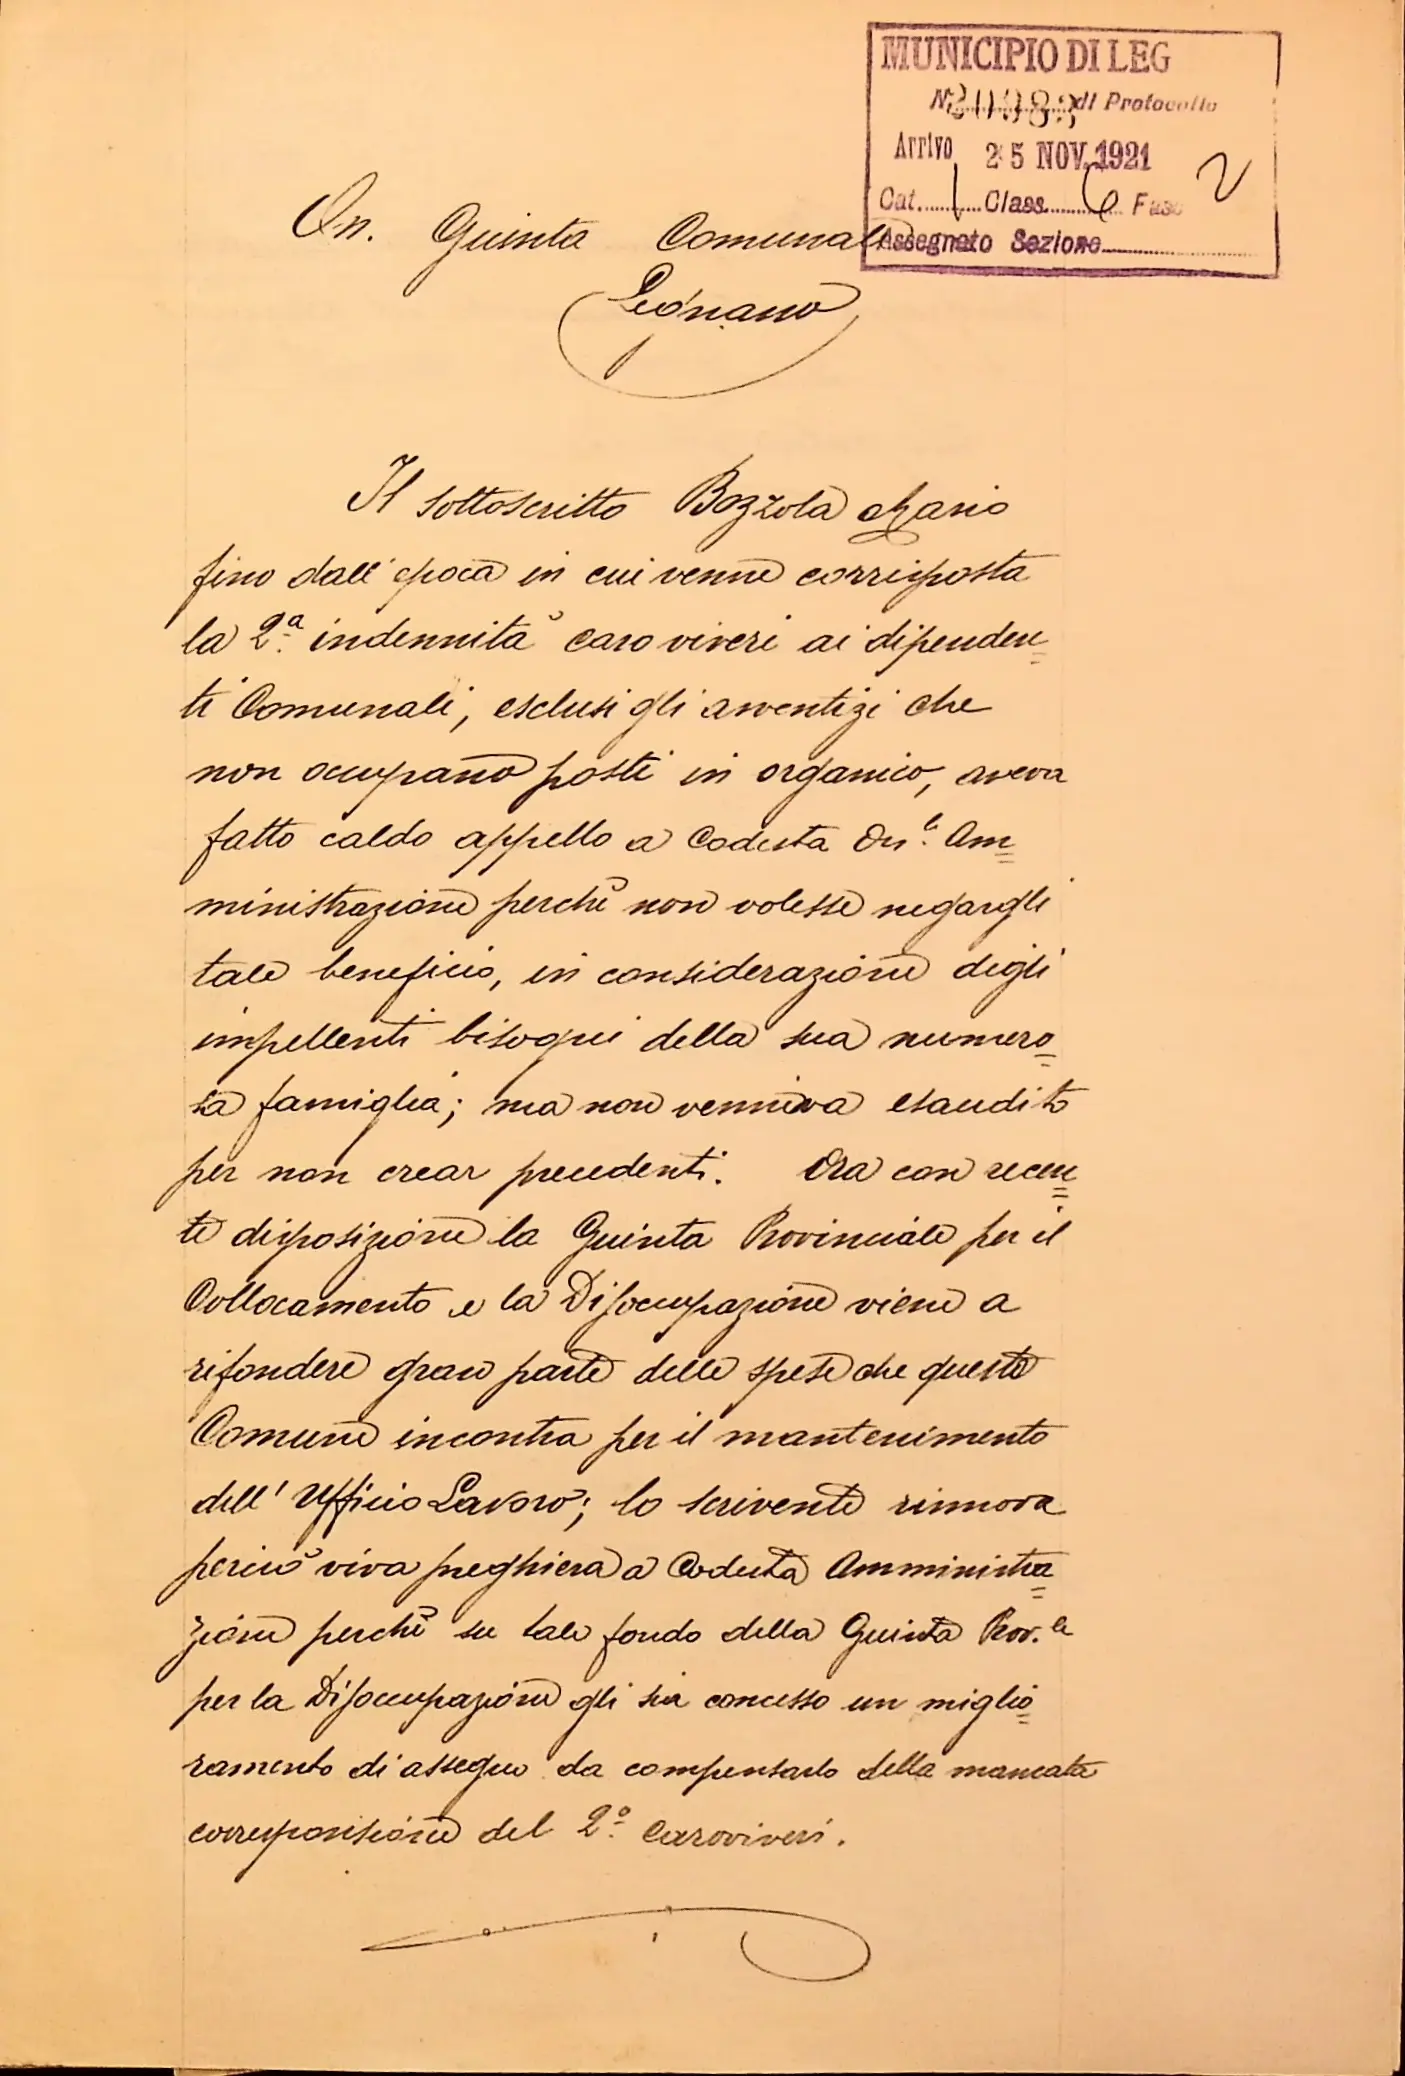 MUNICIPIO DI LEG
N. di Protocollo
Arrivo 25 NOV. 1921
Cat. 1 Class. 6 Fasc 2
Assegnato Sezione
On. Giunta Comunale
Legnano
Il sottoscritto Bozzola Mario
fino dall' epoca in cui venne corrisposta
la 2.a indennità caro viveri ai dipenden=
ti Comunali, esclusi gli avventizi che
non occupano posti in organico, aveva
fatto caldo appello a Codesta On.le Am=
ministrazione perchè non volesse negargli
tale beneficio, in considerazione degli
impellenti bisogni della sua numero=
sa famiglia; ma non venniva esaudito
per non crear precedenti. Ora con recen=
te disposizione la Giunta Provinciale per il
Collocamento e la Disoccupazione viene a
rifondere gran parte delle spese che questo
Comune incontra per il mantenimento
dell' Ufficio Lavoro; lo scrivente rinnova
perciò viva preghiera a Codesta Amministra=
zione perchè su tale fondo della Giunta Prov.le
per la Disoccupazione gli sia concesso un miglio=
ramento di assegno da compensarlo della mancata
corresponsione del 2.o Caroviveri.